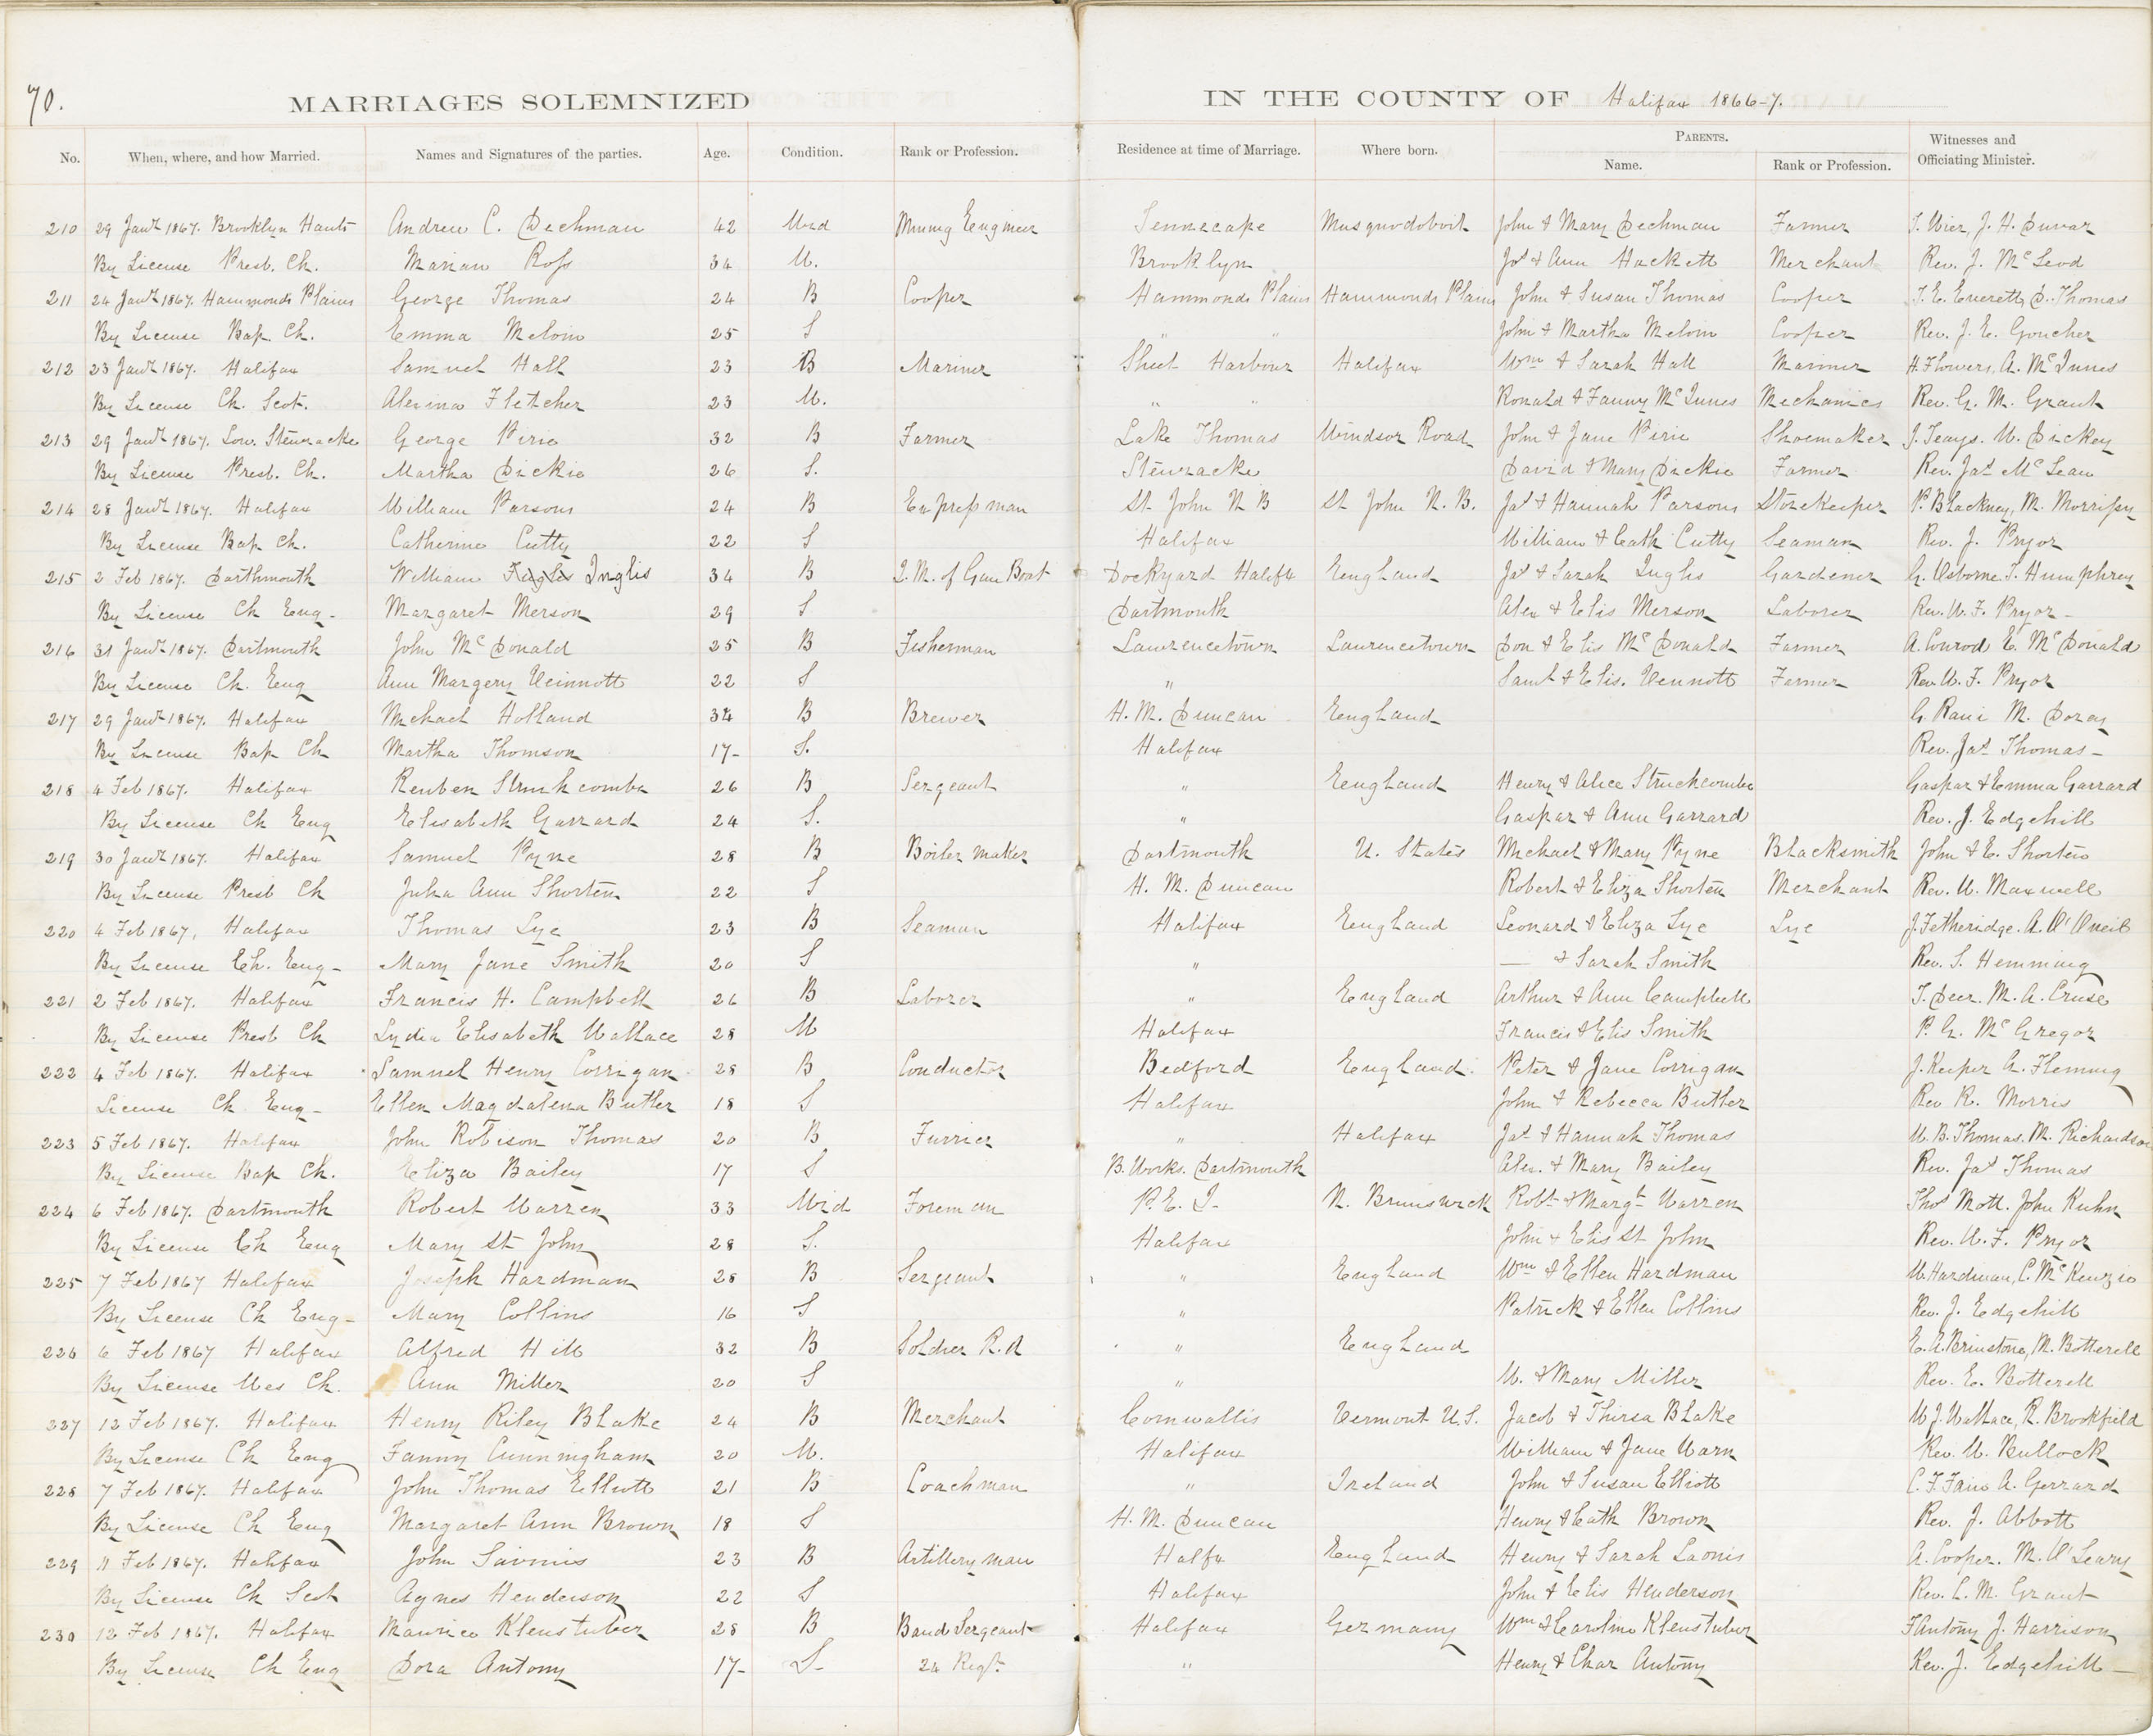 70.
MARRIAGES SOLEMNIZED IN THE COUNTY OF Halifax 1866-7.
No. When, where, and how Married. Names and Signatures of the parties. Age. Condition. Rank or Profession. Residence at time of Marriage. Where born. PARENTS. Name. Rank or Profession. Witnesses and Officiating Minister.
210 29 Jany 1867. Brooklyn Hants Andrew C. Dechman 42 Wid Mining Engineer Tennecape Musquodoboit John & Mary Dechman Farmer T. Wier, J. H. Duvar
By License Presb. Ch. Marian Ross 34 W. Brooklyn Jas & Ann Hackett Merchant Rev. J. McLeod
211 24 Jany 1867. Hammonds Plains George Thomas 24 B Cooper Hammonds Plains Hammonds Plains John & Susan Thomas Cooper T. E. Everett, D. Thomas
By License Bap Ch. Emma Melvin 25 S " " John & Martha Melvin Cooper Rev. J. E. Goucher
212 23 Jany 1867. Halifax Samuel Hall 23 B Mariner Sheet Harbour Halifax Wm & Sarah Hall Mariner H. Flowers, A. McInnes
By License Ch. Scot. Alexina Fletcher 23 W. " " Ronald & Fanny McInnes Mechanics Rev. G. M. Grant
213 29 Jany 1867. Low. Stewiacke George Pirie 32 B Farmer Lake Thomas Windsor Road John & Jane Pirie Shoemaker J. Teays. W. Dickey
By License Presb. Ch. Martha Dickie 26 S. Stewiacke David & Mary Dickie Farmer Rev. Jas McLean
214 28 Jany 1867. Halifax William Parsons 24 B Expressman St. John N B St John N. B. Jas & Hannah Parsons Storekeeper P. Blackney, M. Morrissy
By License Bap Ch. Catherine Cutty 22 S Halifax William & Cath Cutty Seaman Rev. J. Pryor
215 2 Feb 1867. Darthmouth William Inglis 34 B Q. M. of Gun Boat Dockyard Halifx England Jas & Sarah Inglis Gardener G. Osborne T. Humphrey
By License Ch Eng- Margaret Merson 29 S Dartmouth Alex & Elis Merson Laborer Rev. W. F. Pryor-
216 31 Jany 1867. Dartmouth John McDonald 25 B Fisherman Lawrencetown Lawrencetown Don & Elis McDonald Farmer A. Conrod E. McDonald
By License Ch. Eng Ann Margery Veinnott 22 S " Saml & Elis. Vennott Farmer Rev. W. F. Pryor
217 29 Jany 1867. Halifax Michael Holland 34 B Brewer H. M. Duncan England G. M. Dorey
By License Bap Ch Martha Thomson 17- S. Halifax Rev. Jas Thomas-
218 4 Feb 1867. Halifax Reuben Struckcombe 26 B Sergeant " England Henry & Alice Struckcombe Gaspar & Emma Garrard
By License Ch Eng Elisabeth Garrard 24 S. " Gaspar & Ann Garrard Rev. J. Edgehill
219 30 Jany 1867. Halifax Samuel Pyne 28 B Boiler Maker Dartmouth U. States Michael & Mary Pyne Blacksmith John & E. Shorten
By License Presb Ch Julia Ann Shorten 22 S H. M. Duncan Robert & Eliza Shorten Merchant Rev. W. Maxwell
220 4 Feb 1867, Halifax Thomas Lye 23 B Seaman Halifax England Leonard & Eliza Lye Lye J. Fetheridge. A. O'Oneil
By License Ch. Eng- Mary Jane Smith 20 S " — & Sarah Smith Rev. S. Hemming
221 2 Feb 1867. Halifax Francis H. Campbell 26 B Laborer " England Arthur & Ann Campbell T. Deer. M. A. Cruse
By License Presb Ch Lydia Elisabeth Wallace 28 W Halifax Francis & Elis Smith P. G. McGregor
222 4 Feb 1867. Halifax Samuel Henry Corrigan 28 B Conductor Bedford England. Peter & Jane Corrigan J. Keeper A. Fleming
License Ch Eng- Ellen Magdalena Butler 18 S Halifax John & Rebecca Butler Rev R. Morris
223 5 Feb 1867. Halifax John Robison Thomas 20 B Furrier " Halifax Jas & Hannah Thomas W. B. Thomas. M. Richardson
By License Bap Ch. Eliza Bailey 17 S B. Works. Dartmouth Alex. & Mary Bailey Rev. Jas Thomas
224 6 Feb 1867. Dartmouth Robert Warren 33 Wid Foreman P. E. I- N. Brunswick Robt & Margt Warren Thos Mott. John Kuhn
By License Ch Eng Mary St John 28 S. Halifax John & Elis St John Rev. W. F. Pryor
225 7 Feb 1867 Halifax Joseph Hardman 28 B Sergeant " England Wm & Ellen Hardman W. Hardman, C. McKenzie
By License Ch Eng- Mary Collins 16 S " Patrick & Ellen Collins Rev. J. Edgehill
226 6 Feb 1867 Halifax Alfred Hill 32 B Soldier R. A " England E. A. Brinstone, M. Botterell
By License Wes Ch. Ann Miller 20 S " W. & Mary Miller Rev. E. Botterell
227 12 Feb 1867. Halifax Henry Riley Blake 24 B Merchant Cornwallis Vermont U.S. Jacob & Thirsa Blake W. J. Wallace, R. Brookfield
By License Ch Eng Fanny Cunningham 20 W. Halifax William & Jane Warn Rev. W. Bullock
228 7 Feb 1867. Halifax John Thomas Elliott 21 B Coachman " Ireland John & Susan Elliott C. F. A. Gerrard
By License Ch Eng Margaret Ann Brown 18 S H. M. Duncan Henry & Cath Brown Rev. J. Abbott
229 11 Feb 1867. Halifax John 23 B Artilleryman Halfx England Henry & Sarah Laonis A. Cooper. M. O'Leary
By License Ch Scot Agnes Henderson 22 S Halifax John & Elis Henderson Rev. C. M. Grant
230 12 Feb 1867. Halifax Maurice Klenstuber 28 B Band Sergeant Halifax Germany Wm & Caroline Klenstuber F Antony J. Harrison
By License Ch Eng Dora Antony 17- S- 24 Regt. " Henry & Char Antony Rev. J. Edgehill-